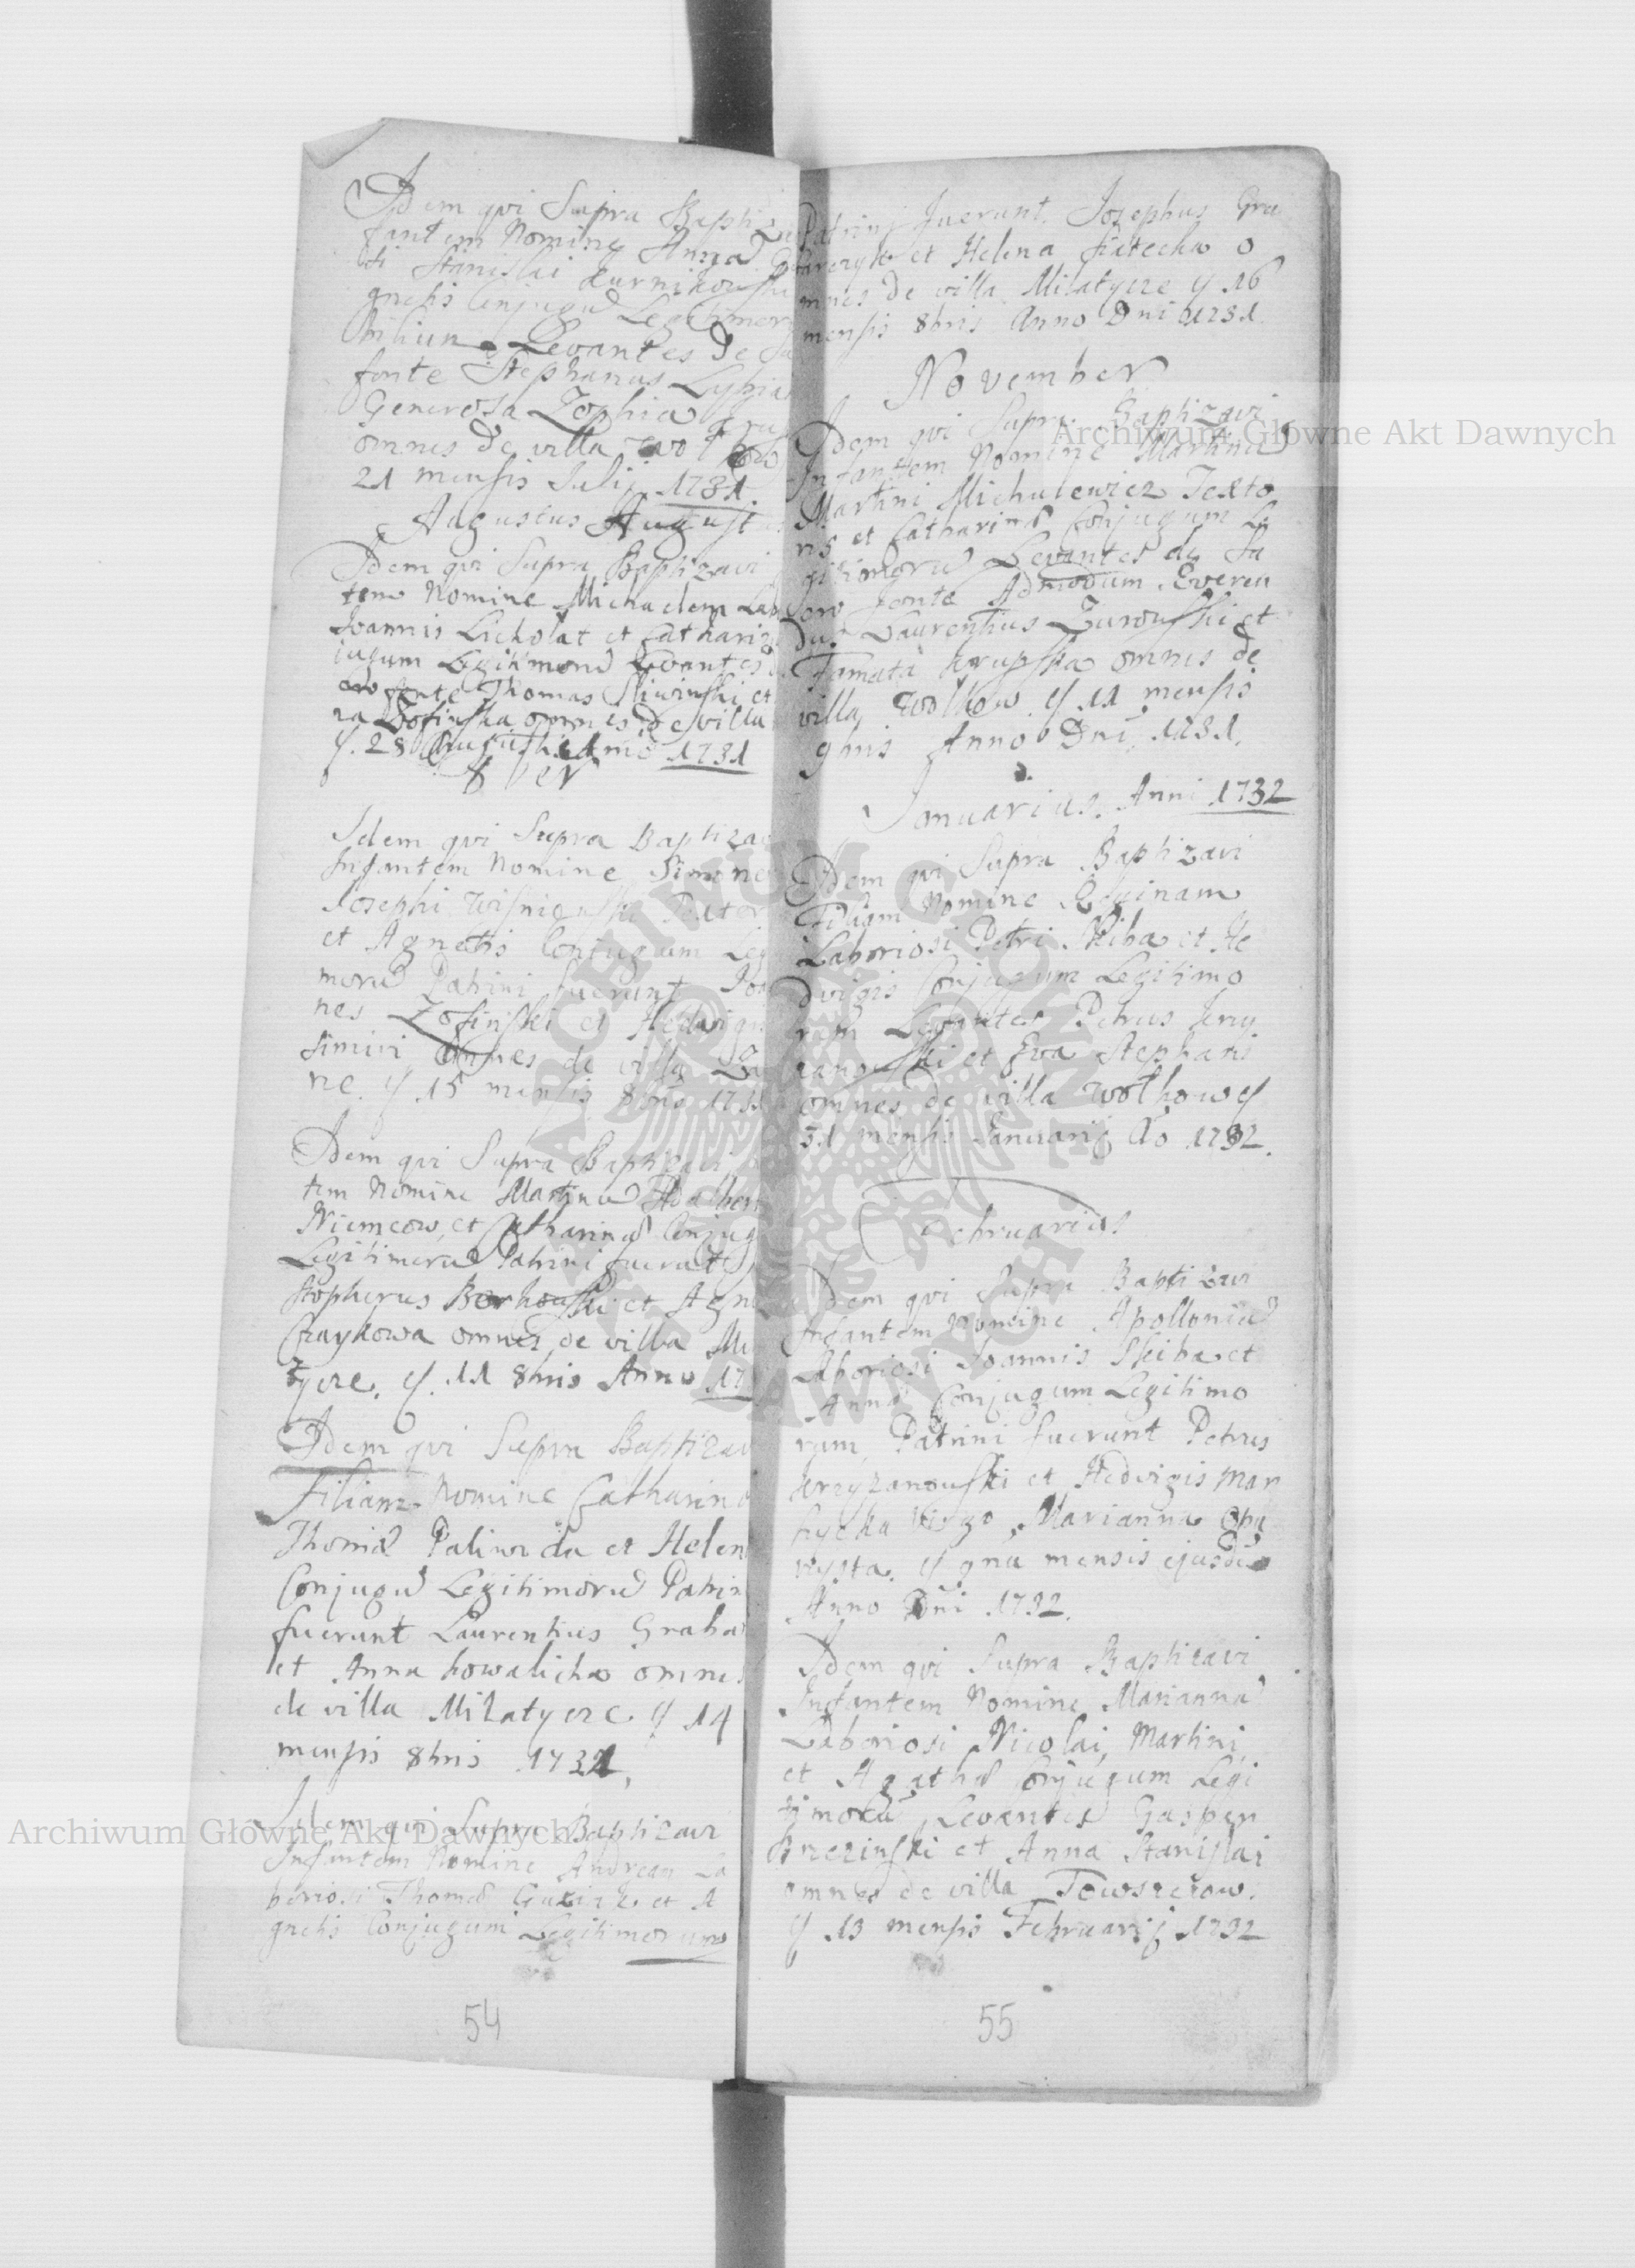 Idem qui Supra Baptiza
fantem Nomine Anna
Stanislai
gnetis Conjugu Legitimor
Levantes de Sa
fonte Stephanus
Generosa Zophia
omnes de villa
21 mensis Julij 1731.
Augustus August
Idem qui Supra Baptizavi
tem Nomine Michaelem Lab
Joannis Lickolat et Catharin
jugum Legitimoru Levantes d
cro fonte Thomas Sliwinski et
na Zofinska omnes de villa
y. 28 Augusti Anno 1731
8 ber
Idem qui Supra Baptizav
Infantem Nomine Simone
Josephi Wisnieuski Textor
et Agnetis Conjugum Legi
moru Patrini fuerunt Joa
nes Zofinski et Hedwigis
simiri Omnes de villa
ne. y 15 mensis 8bris 1731
Idem qui Supra Baptizavi
tem Nomine Martinu Adalber
Niemcow, et Catharinae Conjug
Legitimoru Patrini fuerut
stopherus Borkouski et Agn
Czaykowa omnes de villa Mi
tycze. y. 11 8bris Anno 17
Idem qui Supra Baptizav
Filiam Nomine Catharina
Thomae Paliwoda et Helen
Conjugu Legitimoru Patrin
fuerunt Laurentius Graba
et Anna Kowalicha omnes
de villa Milatycze y 14
mensis 8bris 1731,
Idem qui Supra Baptizavi
Infantem Nomine Andream La
boriosi Thomae et A
gnetis Conjugum Legitimorum
54
Patrini fuerunt. Josephus Gra
et Helena o
mnes de villa Milatycze y 16
mensis 8bris Anno Dni 1731
November
Idem qui Supra Baptizavi
Infantem Nomine Martinu
Martini Michulewicz Texto
ris et Catharinae Conjugum Le
gitimoru Levantes de Sa
cro fonte Admodum Reveren
dus Laurentius Zurowski et
Famata Krupska omnes de
villa Wolkow y 11 mensis
9bris Anno Dni 1731.
Januarius. Anni 1732
Idem qui Supra Baptizavi
Filiam Nomine Reginam
Laboriosi Petri Skiba et He
dvigis Conjugum Legitimo
rum Levantes Petrus Krzy
zanouski et Eva Stephani
omnes de villa Wolkow y
31 mensis Januarij Ao 1732.
Februarius.
Idem qui Supra Baptizavi
Infantem Nomine Apollonia
Laboriosi Joannis Skiba et
Annae Conjugum Legitimo
rum Patrini fuerunt Petrus
Krzyzanouski et Hedvigis Mar
Virgo, Marianna
y 9na mensis ejusde
Anno Dni 1732.
Idem qui Supra Baptizavi
Infantem Nomine Marianna
Laboriosi Nicolai Martini
et Agathae Conjugum Legi
timoru Levantes Gasper
Brzezinski et Anna Stanislai
omnes de villa Towszczow.
y 13 mensis Februarij 1732
55
Archiwum Główne Akt Dawnych
Archiwum Główne Akt Dawnych
ARCHIWUM GŁÓWNE AKT DAWNYCH